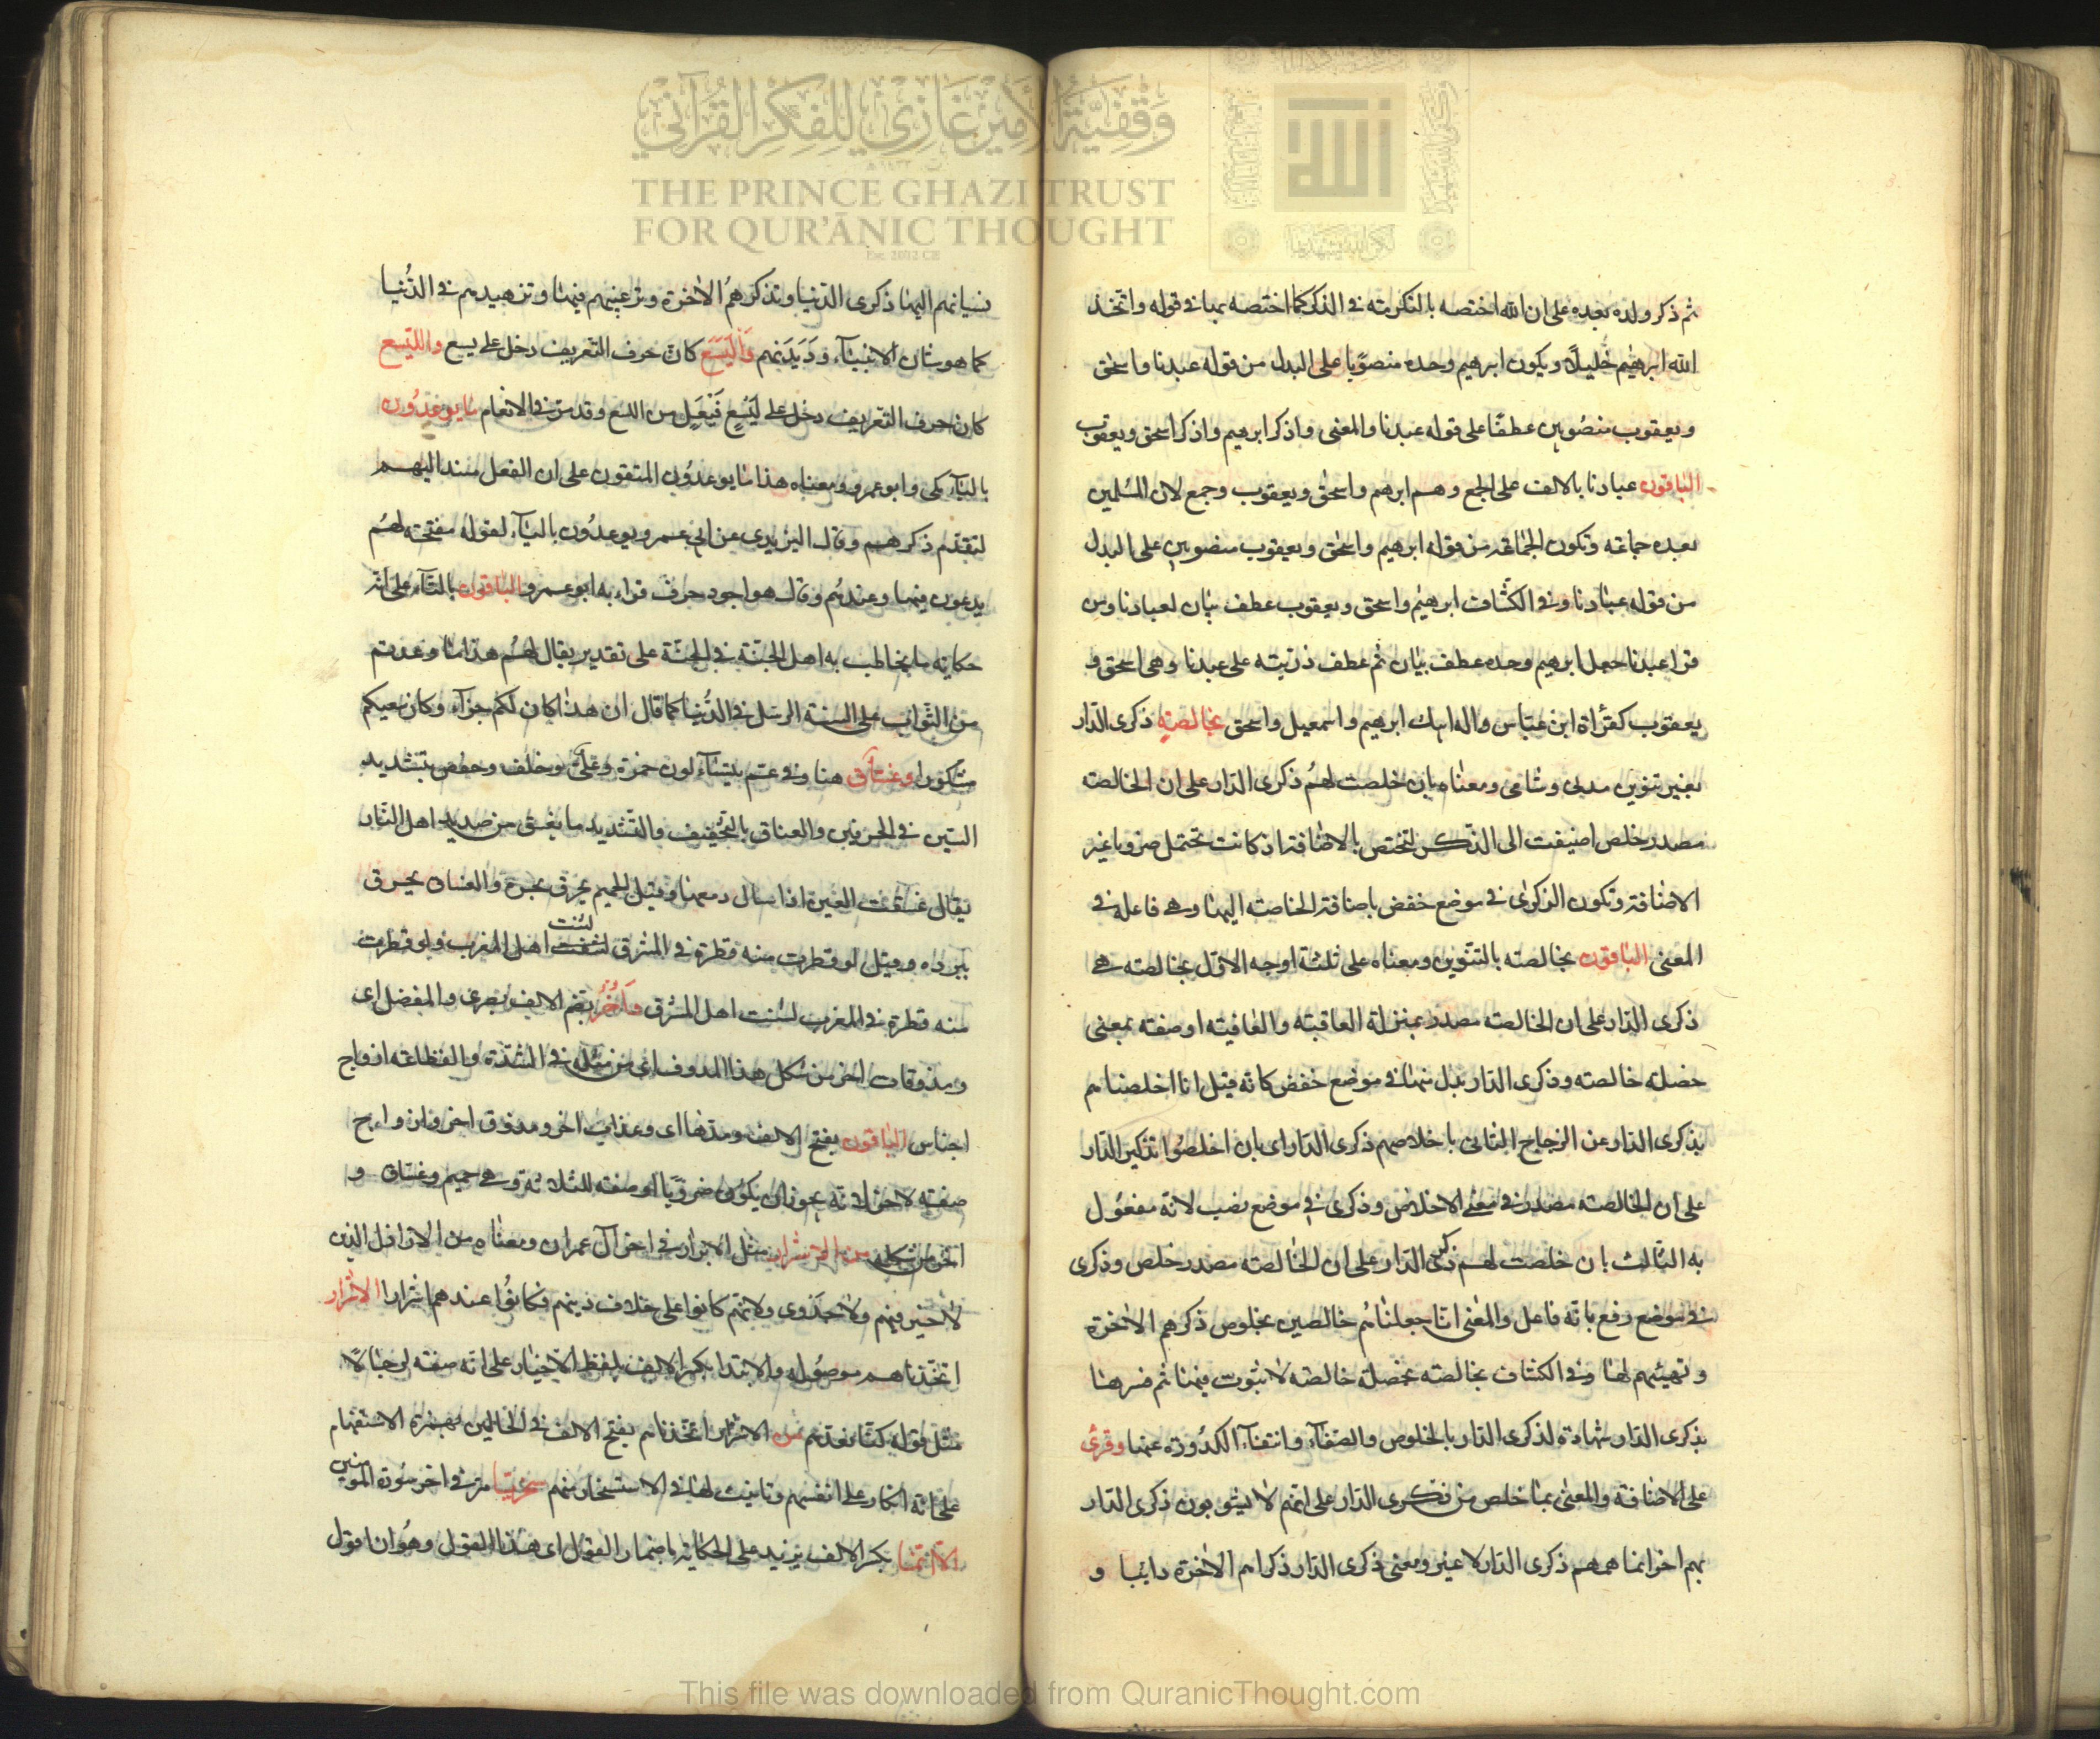 وقفية الأمير غازي للفكر القرآني
THE PRINCE GHAZI TRUST
FOR QUR'ĀNIC THOUGHT
Est. 2012 CE
الله
ثم ذكر ولده بعده على ان الله اختصه بالتكرمة فى الذكر كما اختصه بها فى قوله واتخذ
الله ابرهيم خليلاً ويكون ابرهيم وحده منصوبا على البدل من قوله عبدنا واسحق
ويعقوب منصوبين عطفا على قوله عبدنا والمعنى واذكر ابرهيم واذكر اسحق ويعقوب
الباقون عبادنا بالالف على الجمع وهم ابرهيم واسحق ويعقوب وجمع لان المسلمين
بعده جماعة وتكون الجماعة من قوله ابرهيم واسحق ويعقوب منصوبين على البدل
من قوله عبادنا وفى الكشاف ابرهيم واسحق ويعقوب عطف بيان لعبادنا ومن
قرا عبدنا جعل ابرهيم وحده عطف بيان ثم عطف ذريته على عبدنا وهى اسحق و
يعقوب كقرأة ابن عباس واله ابيك ابرهيم واسمعيل واسحق بخالصة ذكرى الدار
بغير تنوين مدنى وشامى ومعناه بان خلصت لهم ذكرى الدار على ان الخالصة
مصدر خلص اضيفت الى الذكر لتختص بالاضافة اذ كانت تحتمل ضروبا غير
الاضافة وتكون الذكرى فى موضع خفض باضافة الخاصة اليها وهى فاعلة فى
المعنى الباقون بخالصة بالتنوين ومعناه على ثلثة اوجه الاول بخالصة هى
ذكرى الدار على ان الخالصة مصدر بمنزلة العاقبة والعافية او صفة بمعنى
خصلة خالصة وذكرى الدار بدل منها فى موضع خفض كانه قيل انا اخلصناهم
بذكرى الدار عن الزجاج الثانى باخلاصهم ذكرى الدار اى بان اخلصوا تذكير الدار
على ان الخالصة مصدر فى معنى الاخلاص وذكرى فى موضع نصب لانه مفعول
به الثالث بان خلصت لهم ذكرى الدار على ان الخالصة مصدر خلص وذكرى
فى موضع رفع بانه فاعل والمعنى انا جعلناهم خالصين بخلوص ذكرهم الاخرة
وتهيئهم لها وفى الكشاف بخالصة بخصلة خالصة لا شوب فيها ثم فسرها
بذكرى الدار شهادة لذكرى الدار بالخلوص والصفاء وانتفاء الكدورة عنها وقرئ
على الاضافة والمعنى بما خلص من ذكرى الدار على انهم لا يشوبون ذكرى الدار
بهم اخر انما همهم ذكرى الدار لا غير ومعنى ذكرى الدار ذكراهم الاخرة دايبا و
نسيانهم اليها ذكرى الدنيا وتذكرهم الاخرة وترغيبهم فيها وتزهيدهم فى الدنيا
كما هو شان الانبياء وديدنهم وَالْيَسَع كان حرف التعريف دخل على يسع والليسع
كان حرف التعريف دخل على لَيْسَع فَيْعَل من اللسع وقد مر فى الانعام ما يوعدون
بالياء مكى وابو عمرو ومعناه هذا ما يوعدون المتقون على ان الفعل مسند اليهم
لتقدم ذكرهم وقال اليزيدى عن ابى عمرو يوعدون بالياء لقوله مفتحة لهم
يدعون فيها وعندهم وقال هو اجود حرف قراء به ابو عمرو الباقون بالتاء على انه
حكاية ما يخاطب به اهل الجنة فى الجنة على تقدير يقال لهم هذا ما وعدتم
من الثواب على السنة الرسل فى الدنيا كما قال ان هذا كان لكم جزآء وكان سعيكم
مشكورا وغساق هنا وفى عم يتساءلون حمزة وعلى وخلف وحفص بتشديد
السين فى الحرفين والغساق بالتخفيف والتشديد ما يغسق من صديد اهل النار
يقال غسقت العين اذا سال دمعها وقيل الحميم يحرق بحره والغساق يحرق
ببرده وقيل لو قطرت منه قطرة فى المشرق لنتنت اهل المغرب ولو قطرت
منه قطرة فى المغرب لنتنت اهل المشرق وَأُخَرُ بضم الالف بصرى والمفضل اى
ومذوقات اخر من شكل هذا المذوف اى من مثله فى الشدة والفظاعة ازواج
اجناس الباقون بفتح الالف ومدها اى وعذاب اخر ومذوق اخر وازواج
صفة لاخر لانه يجوز ان يكون ضروبا او صفة للثلاثة وهى حميم وغساق و
اخر من شكله من الاشرار مثل الابرار فى اخر آل عمران ومعناه من الاراذل الذين
لا خير فيهم ولا جدوى ولانهم كانوا على خلاف دينهم فكانوا عندهم اشرارا الاشرار
اتخذناهم موصولة والابتدا بكسر الالف بلفظ الاخبار على انه صفة لرجالا
مثل قوله كنا نعدهم من الاشرار اتخذناهم بفتح الالف فى الحالين بهمزة الاستفهام
على انه انكار على انفسهم وتانيث لها فى الاستسخار منهم سخريا مر فى اخر سورة المومنين
الا انما بكسر الالف يزيد على الحكاية باضمار القول اى هذا القول وهو ان اقول
This file was downloaded from QuranicThought.com